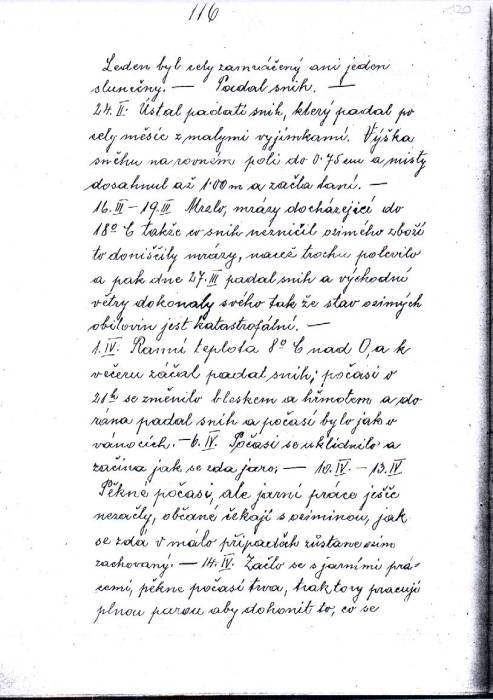 116
120
Leden byl celý zamračený ani jeden
slunečný. — Padal snih. —
24. II. Ustal padati snih, který padal po
celý měsíc z malymi vyjimkami. Výška
sněhu na rovném poli do 0·75 cm a misty
dosahnul až 1·00 m a začla taní. —
16. III – 19. III Mrzlo, mrázy docházející do
18° C takže co snih nezničil ozimého zboží
to doničily mrázy, načež trochu polevilo
a pak dne 27. III padal snih a východní
větry dokonaly svého tak že stav ozimých
obilovin jest katastrofální. —
1. IV. Ranní teplota 8° C nad 0, a k
večeru začal padat snih; počasí o
21h se změnilo bleskem a hřmotem a do
rána padal snih a počasí bylo jako o
vánocích. — 6. IV. Počasí se uklidnilo a
začina jak se zda jaro; — 10. IV. – 13. IV
Pěkné počasi, ale jarní práce ješče
nezačly, občané čekají s oziminou, jak
se zdá v málo připadech zůstane ozim
zachovaný. — 14. IV. Začlo se s jarními prá-
cemi, pěkne počasí trva, traktory pracují
plnou parou aby dohonit to, co se